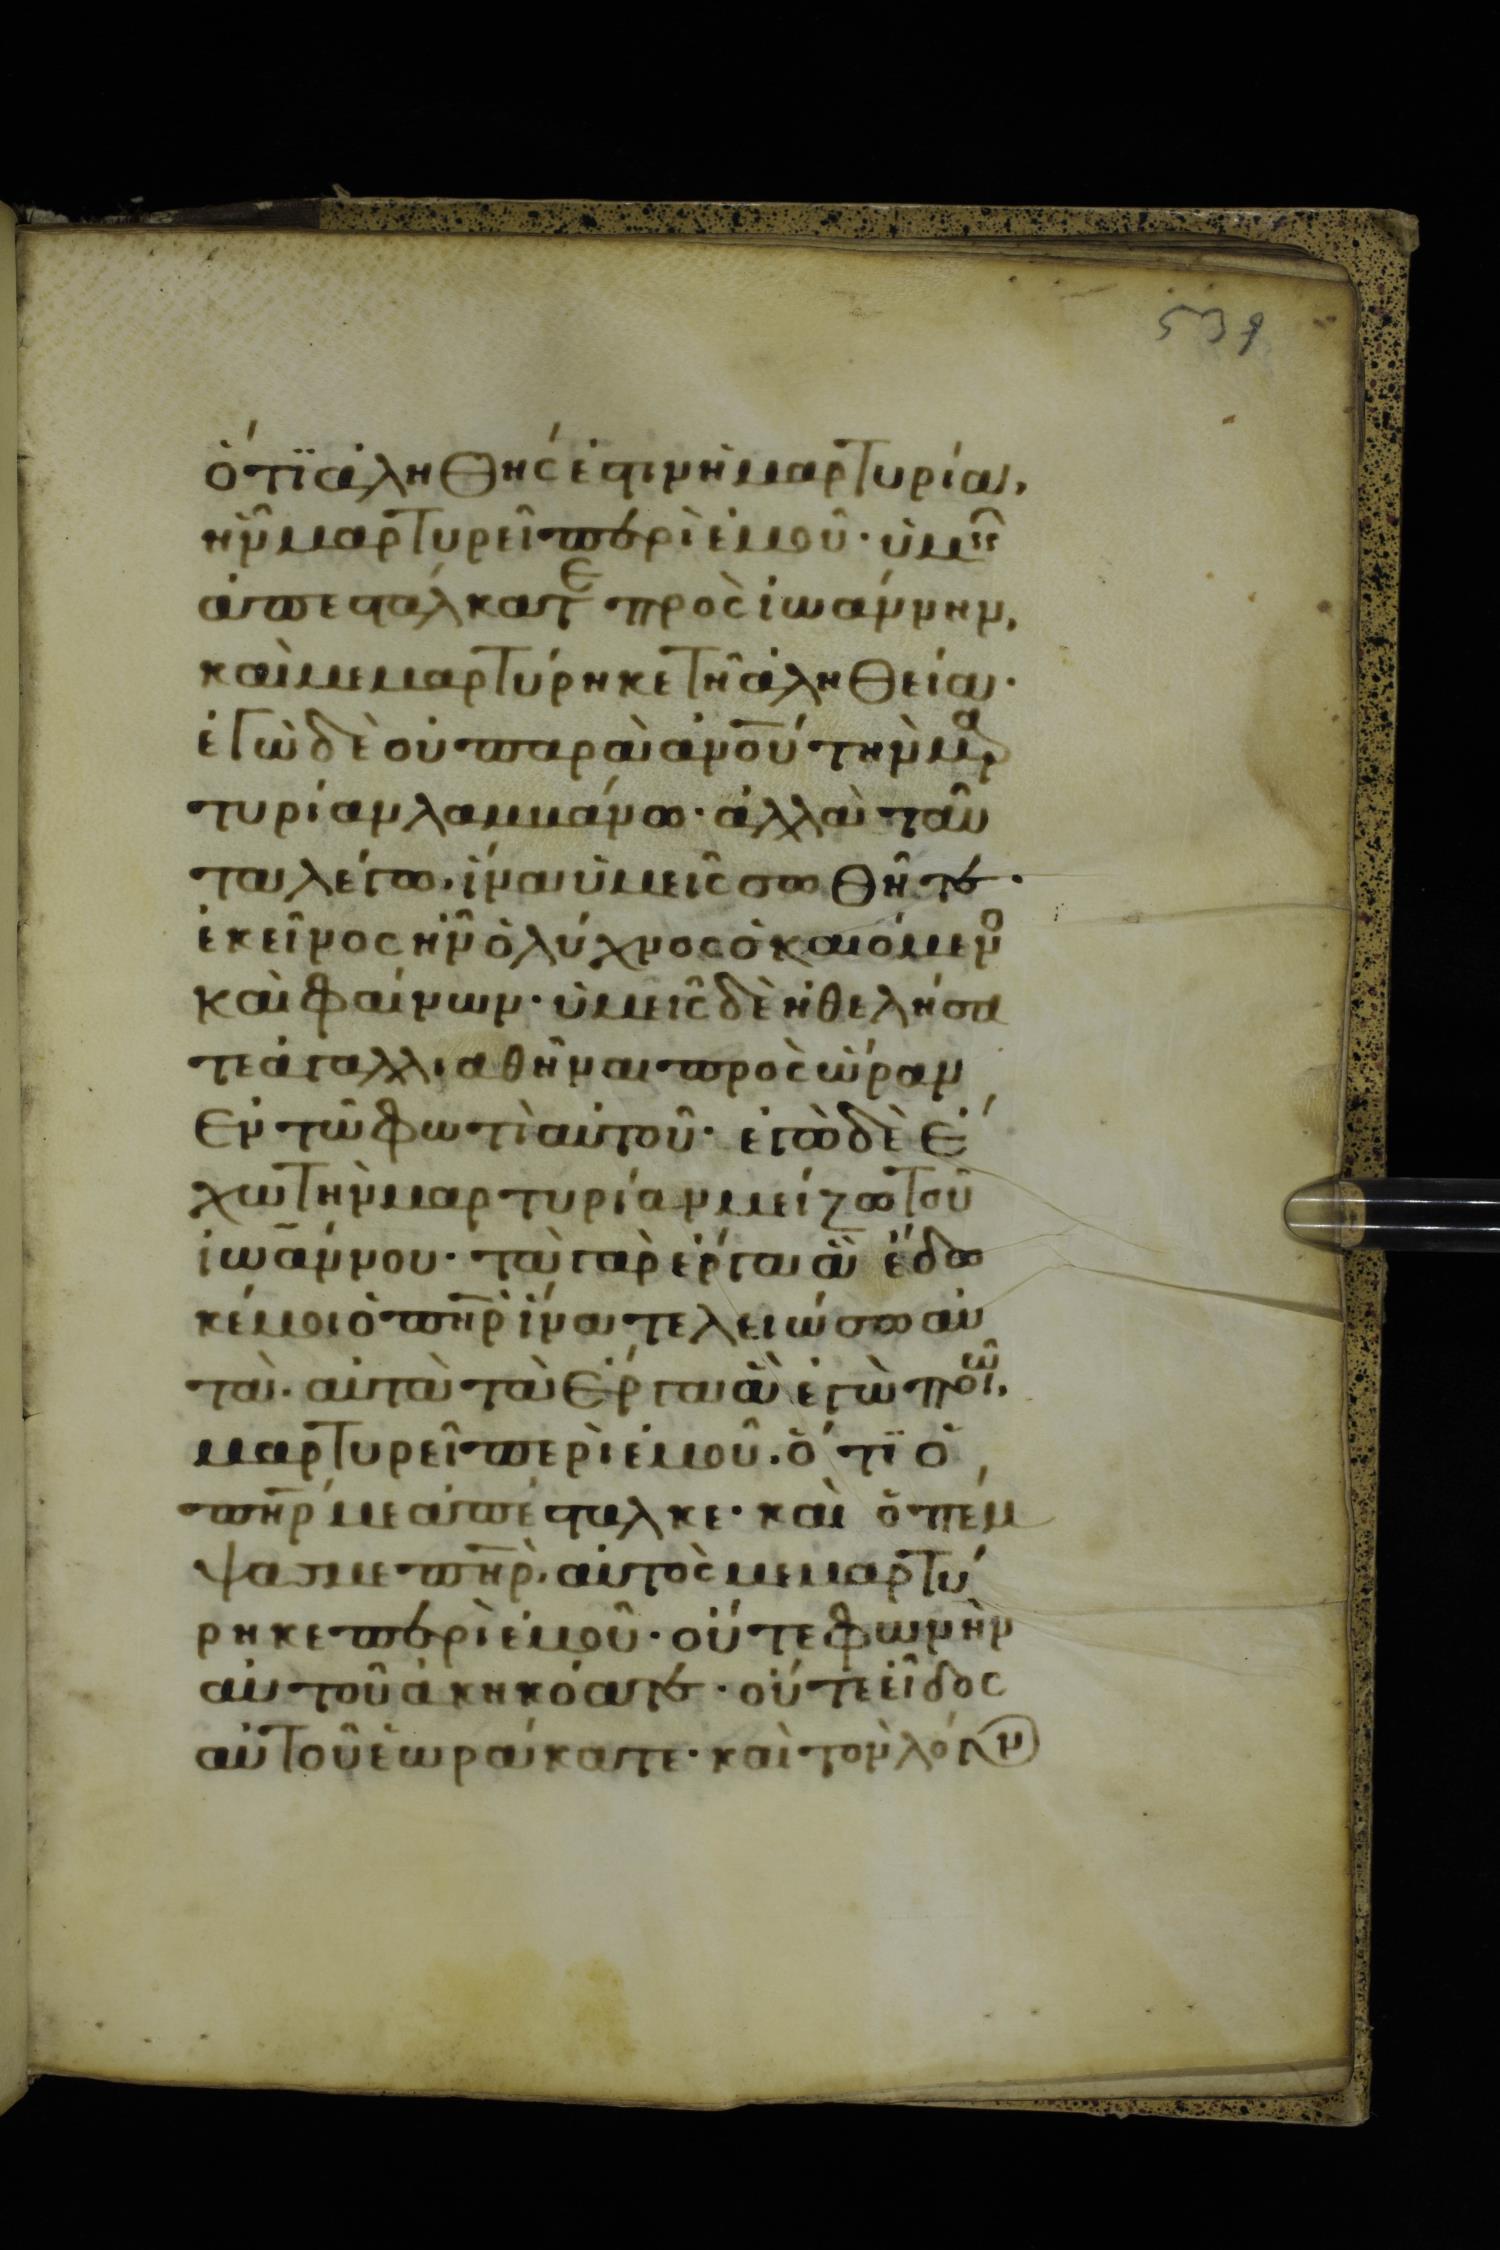 539
ὅτι ἀληθής ἐστιν ἡ μαρτυρία,
ἣν μαρτυρεῖ περὶ ἐμοῦ· ὑμεῖς
ἀπεστάλκατε πρὸς ἰωάννην,
καὶ μεμαρτύρηκε τῆ ἀληθεία·
ἐγὼ δὲ οὐ παρὰ ἀνου τὴν μαρ
τυρίαν λαμβάνω· ἀλλὰ ταῦ
τα λέγω, ἵνα ὑμεῖς σωθῆτε·
ἐκεῖνος ἦν ὁ λύχνος ὁ καιόμενο
καὶ φαίνων· ὑμεῖς δὲ ἠθελήσα
τε ἀγαλλιαθῆναι πρὸς ὥραν
ἐν τῶ φωτὶ αὐτοῦ· ἐγὼ δὲ ἔ
χω τὴν μαρτυρίαν μείζω τοῦ
ἰωάννου· τὰ γὰρ ἔργα ἃ ἔδω
κέ μοι ὁ πηρ ἵνα τελειώσω αὐ
τά· αὐτὰ τὰ ἔργα ἃ ἐγὼ ποιῶ,
μαρτυρεῖ περὶ ἐμοῦ, ὅτι ὁ
πηρ με ἀπέσταλκε· καὶ ὁ πέμ
ψας με πηρ, αὐτὸς μεμαρτύ
ρηκε περὶ ἐμοῦ· οὔτε φωνὴν
αὐτοῦ ἀκηκόατε· οὔτε εἶδος
αὐτοῦ ἑωράκατε· καὶ τὸν λόγον